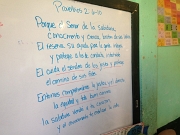 Proverbios 2:6-10
Porque el Señor da la sabiduría
conocimiento y ciencia brotan de sus labios.
El reserva su ayuda para la gente íntegra
y protege a los de conducta intachable
El cuida el sendero de los justos y protege
el camino de sus fieles.
Entonces comprenderás la justicia y el derecho,
la equidad y todo buen camino
la sabiduría vendrá a tu corazón
y el conocimiento te endulzará la vida